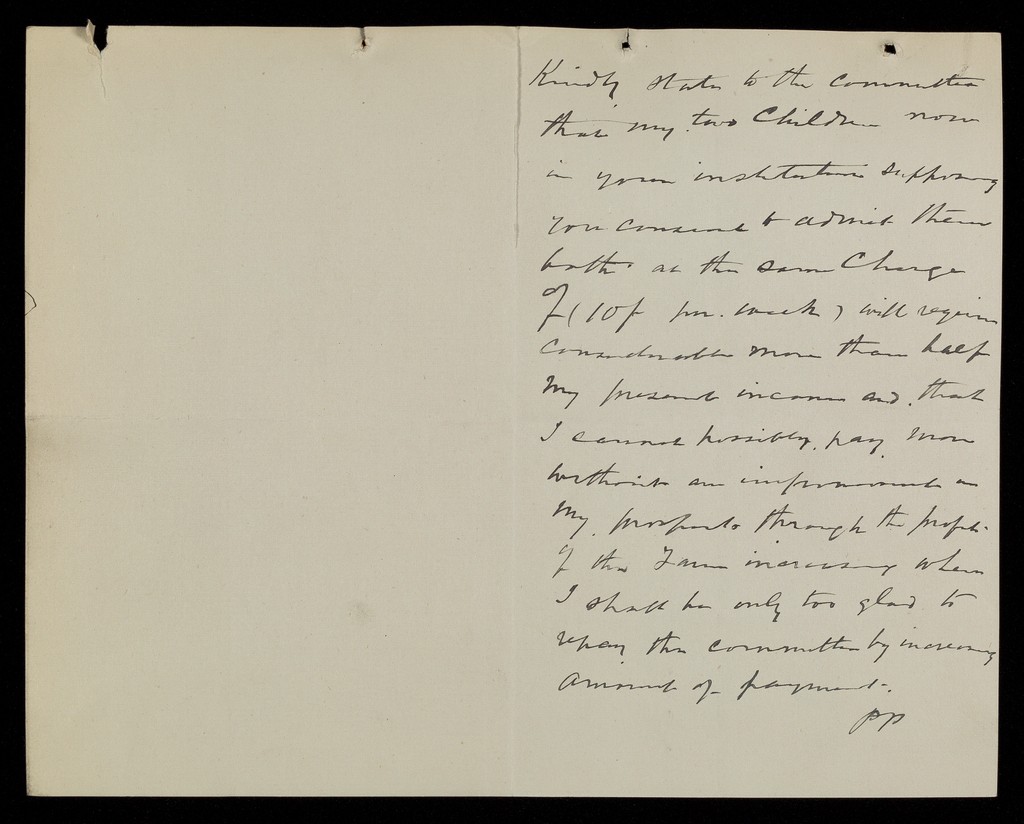 Kindly state to the committee
that my two Children now
in your institution supposing
you consent to admit them
both at the same Charge
of (10/ per. week) will require
considerable more than half
my present income and that
I cannot possibly pay more
without an improvement in
my prospects through the profits
of the Farm increasing when
I shall be only too glad to
repay the committee by increasing
amount of payment.